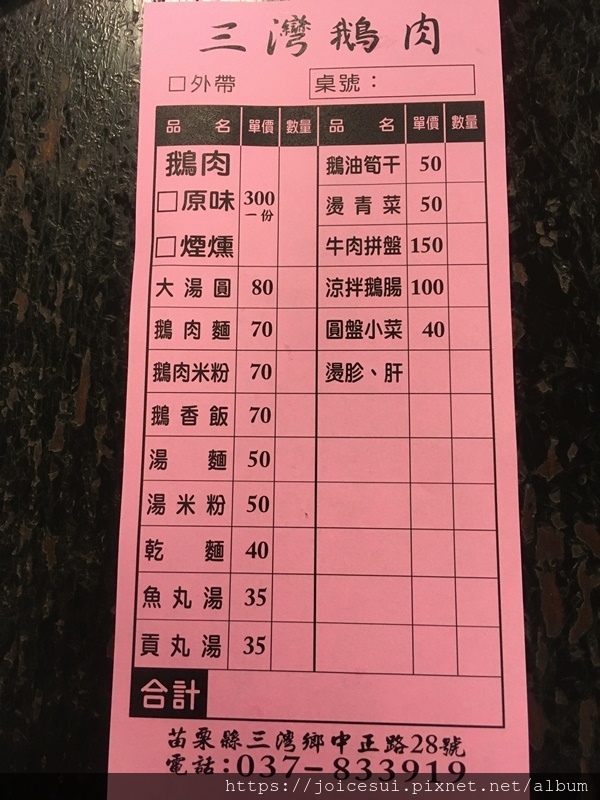 三灣鵝肉
□外帶 桌號：
品名 單價 數量 品名 單價 數量
鵝肉
□原味 300 一份
□煙燻
大湯圓 80
鵝肉麵 70
鵝肉米粉 70
鵝香飯 70
湯麵 50
湯米粉 50
乾麵 40
魚丸湯 35
貢丸湯 35
鵝油筍干 50
燙青菜 50
牛肉拼盤 150
涼拌鵝腸 100
圓盤小菜 40
燙胗、肝
合計
苗栗縣三灣鄉中正路28號
電話：037-833919
https://joicesui.pixnet.net/album